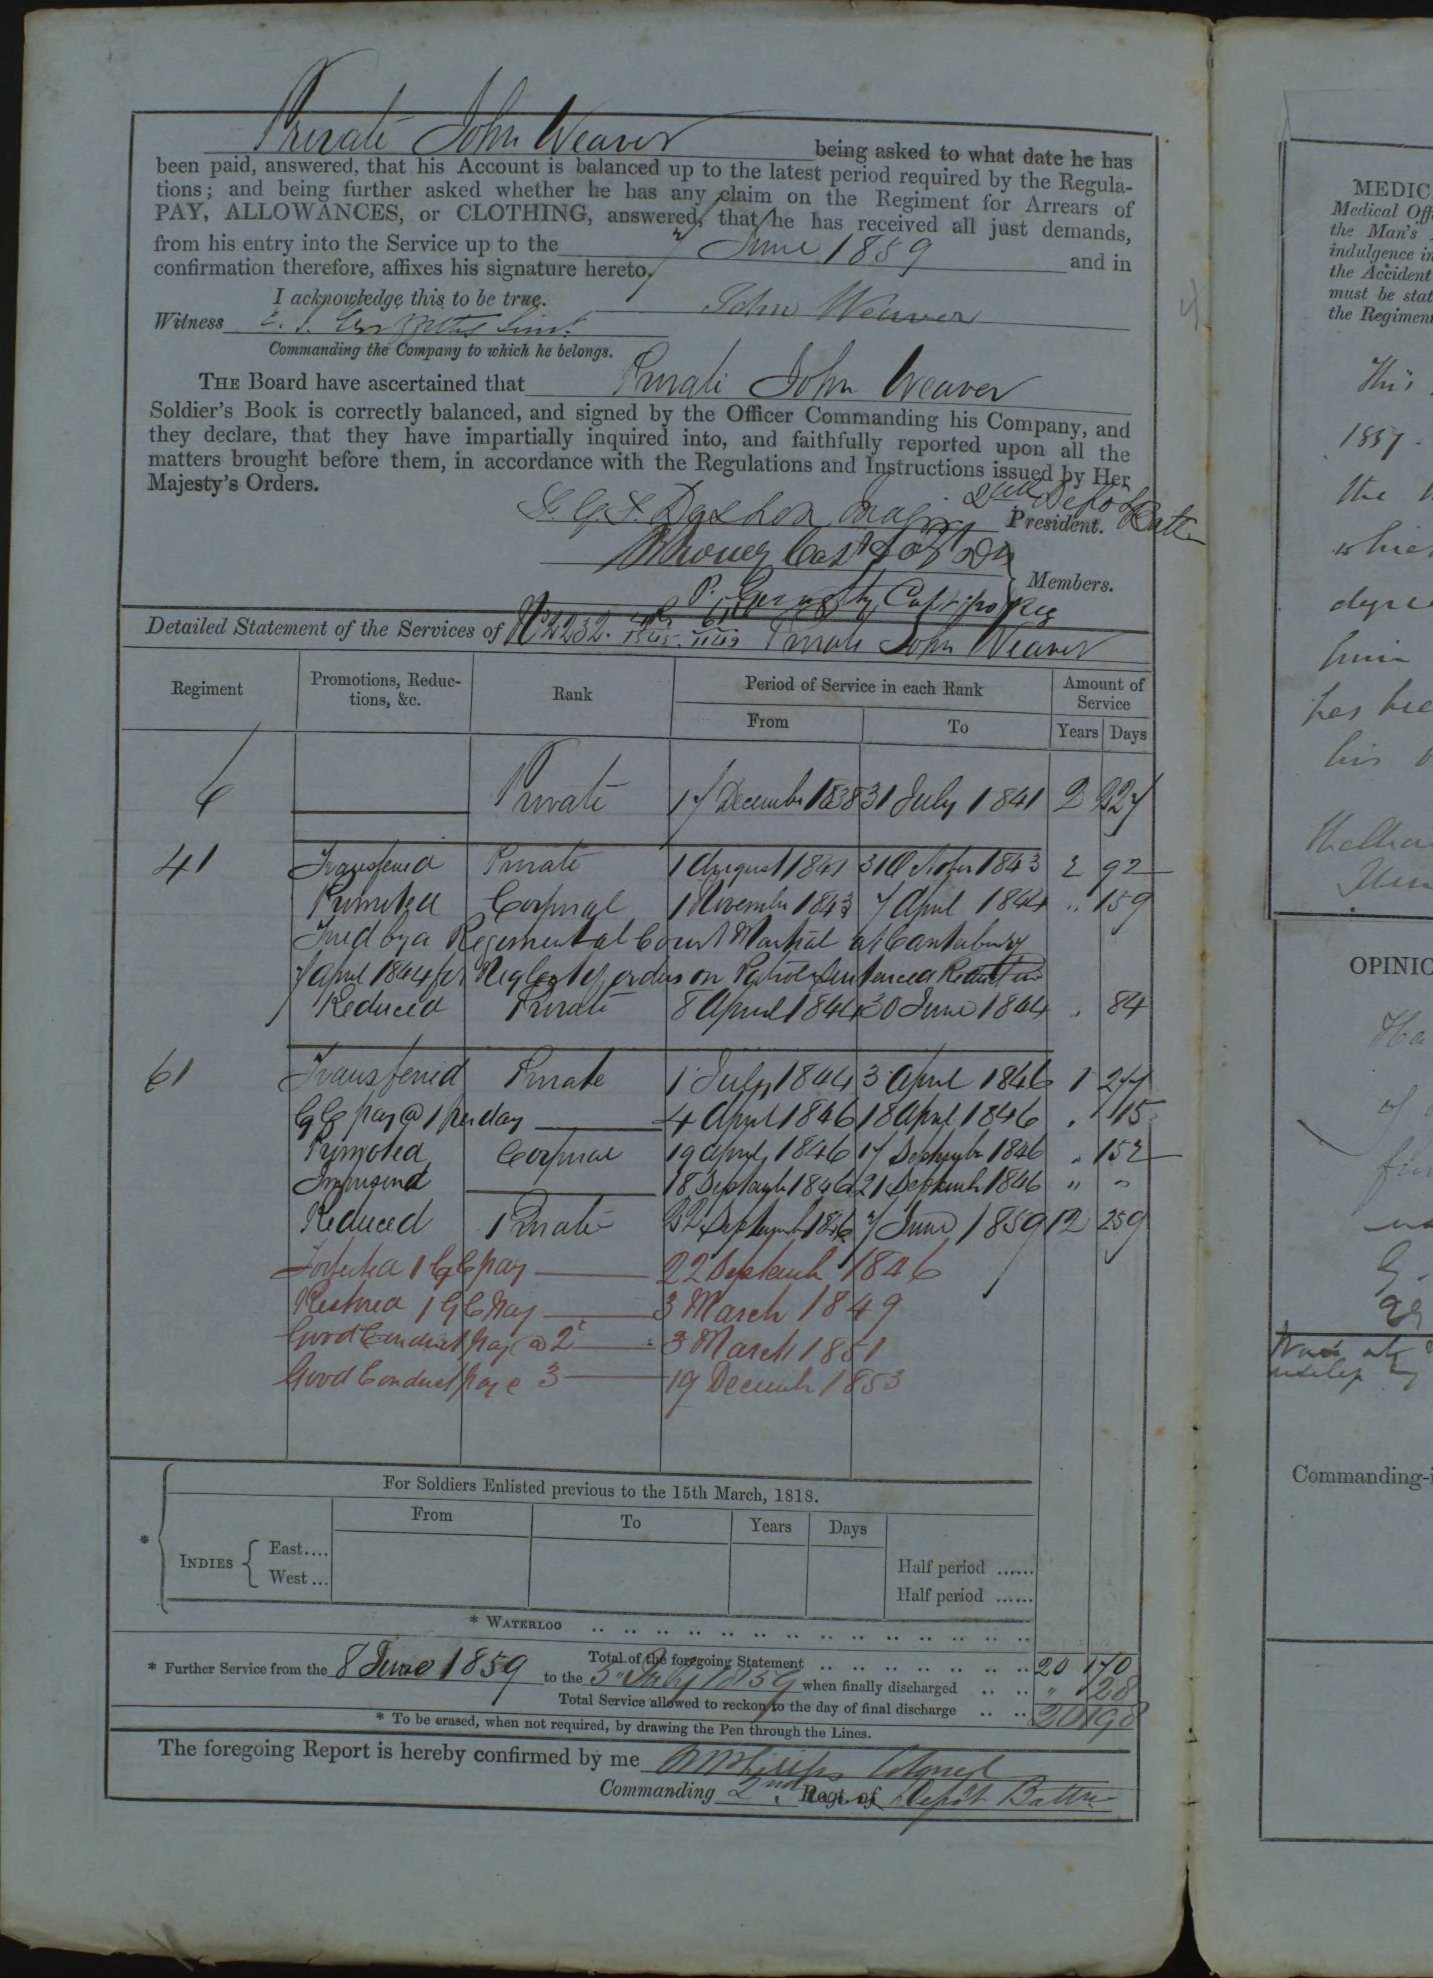 Private John Weaver being asked to what date he has
been paid, answered, that his Account is balanced up to the latest period required by the Regula-
tions; and being further asked whether he has any claim on the Regiment for Arrears of
PAY, ALLOWANCES, or CLOTHING, answered, that he has received all just demands,
from his entry into the Service up to the 7 June 1859 and in
confirmation therefore, affixes his signature hereto,
I acknowledge this to be true. John Weaver
Witness
Commanding the Company to which he belongs.
THE Board have ascertained that Private John Weaver
Soldier's Book is correctly balanced, and signed by the Officer Commanding his Company, and
they declare, that they have impartially inquired into, and faithfully reported upon all the
matters brought before them, in accordance with the Regulations and Instructions issued by Her
Majesty's Orders.
Major President. Depot Battn
Members.
Detailed Statement of the Services of No 2232 Private John Weaver
Regiment Promotions, Reduc-tions, &c. Rank Period of Service in each Rank Amount of Service
From To Years Days
6 Private 17 December 1838 31 July 1841 2 227
41 Transferred Private 1 August 1841 31 October 1843 2 92
Promoted Corporal 1 November 1843 7 April 1844 " 159
Tried by a Regimental Court Martial at Canterbury
7 April 1844 for Neglect of orders on Sentenced
Reduced Private 8 April 1844 30 June 1844 " 84
61 Transferred Private 1 July 1844 3 April 1846 1 277
G C pay @ 1 per day 4 April 1846 18 April 1846 " 15
Promoted Corporal 19 April 1846 17 September 1846 " 152
Imprisoned 18 September 1846 21 September 1846 " "
Reduced Private 22 September 1846 7 June 1859 12 259
Forfeited 1 G C pay 22 September 1846
Restored 1 G C Pay 3 March 1849
Good Conduct pay @ 2 3 March 1851
Good Conduct pay @ 3 19 December 1853
For Soldiers Enlisted previous to the 15th March, 1818.
From To Years Days
* INDIES East.... Half period ......
West ... Half period ......
* WATERLOO
Total of the foregoing Statement 20 170
* Further Service from the 8 June 1859 to the 5 July 1859 when finally discharged " 28
Total Service allowed to reckon to the day of final discharge 20 198
* To be erased, when not required, by drawing the Pen through the Lines.
The foregoing Report is hereby confirmed by me Colonel
Commanding 2nd Regt. of Depôt Battn
MEDIC
Medical Off
the Man's
indulgence in
the Accident
must be stat
the Regimen
This
1857
the
which
degree
him
has bee
his
OPINIO
Commanding-i